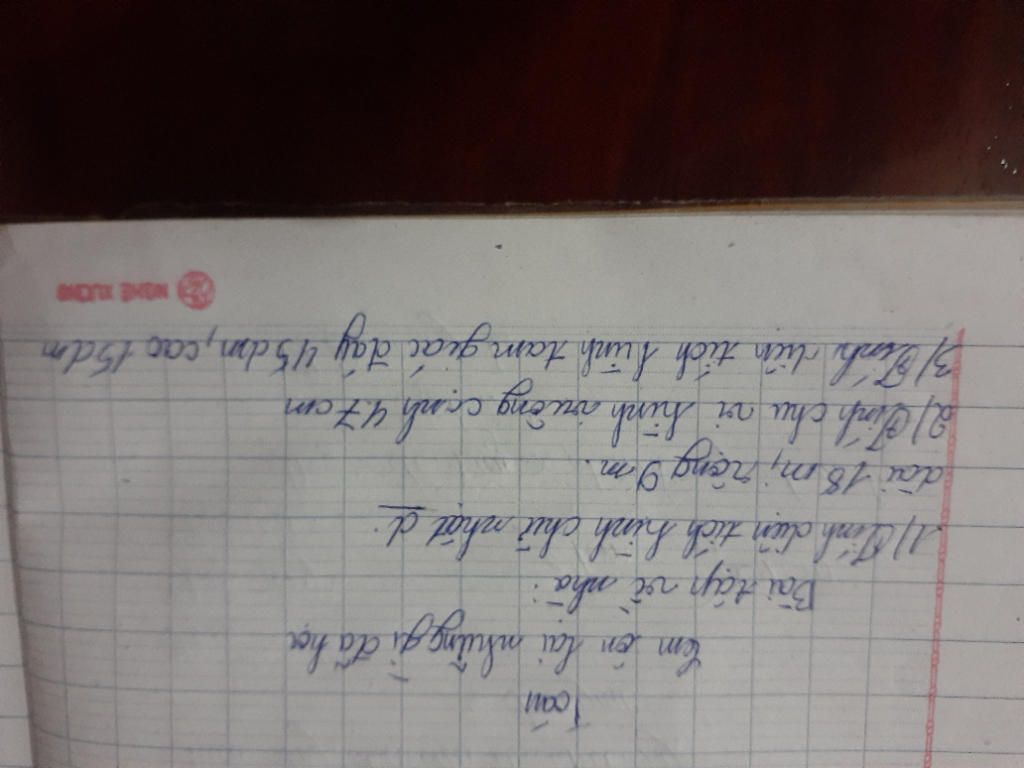 Toán
Em ôn lại những gì đã học
Bài tập về nhà:
1) Tính diện tích hình chữ nhật d
dài 18 m, rộng 9 m.
2) Tính chu vi hình vuông cạnh 47 cm
3) Tính diện tích hình tam giác đáy 45 dm, cao 15 dm
NGHĨA XƯƠNG